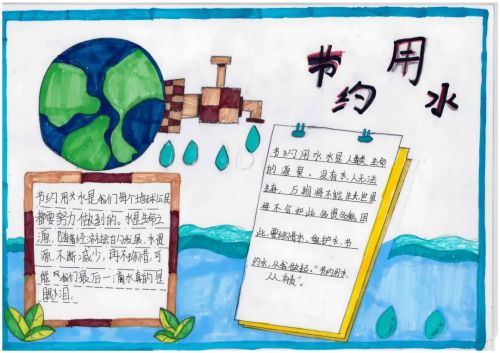 节约用水
节约用水是我们每个地球公民
都要努力做到的。水是生命之
源，随着经济社会的发展，水资
源，不断减少，再不珍惜，可
能我们最后一滴水真的是
眼泪。
节约用水水是人类生命
的源泉。没有水，人无法
生存，万物将不能生长世界
将不会如此
此，要珍惜水，维护水，节
约水，从我做起。"节约用水，
人人有责"。